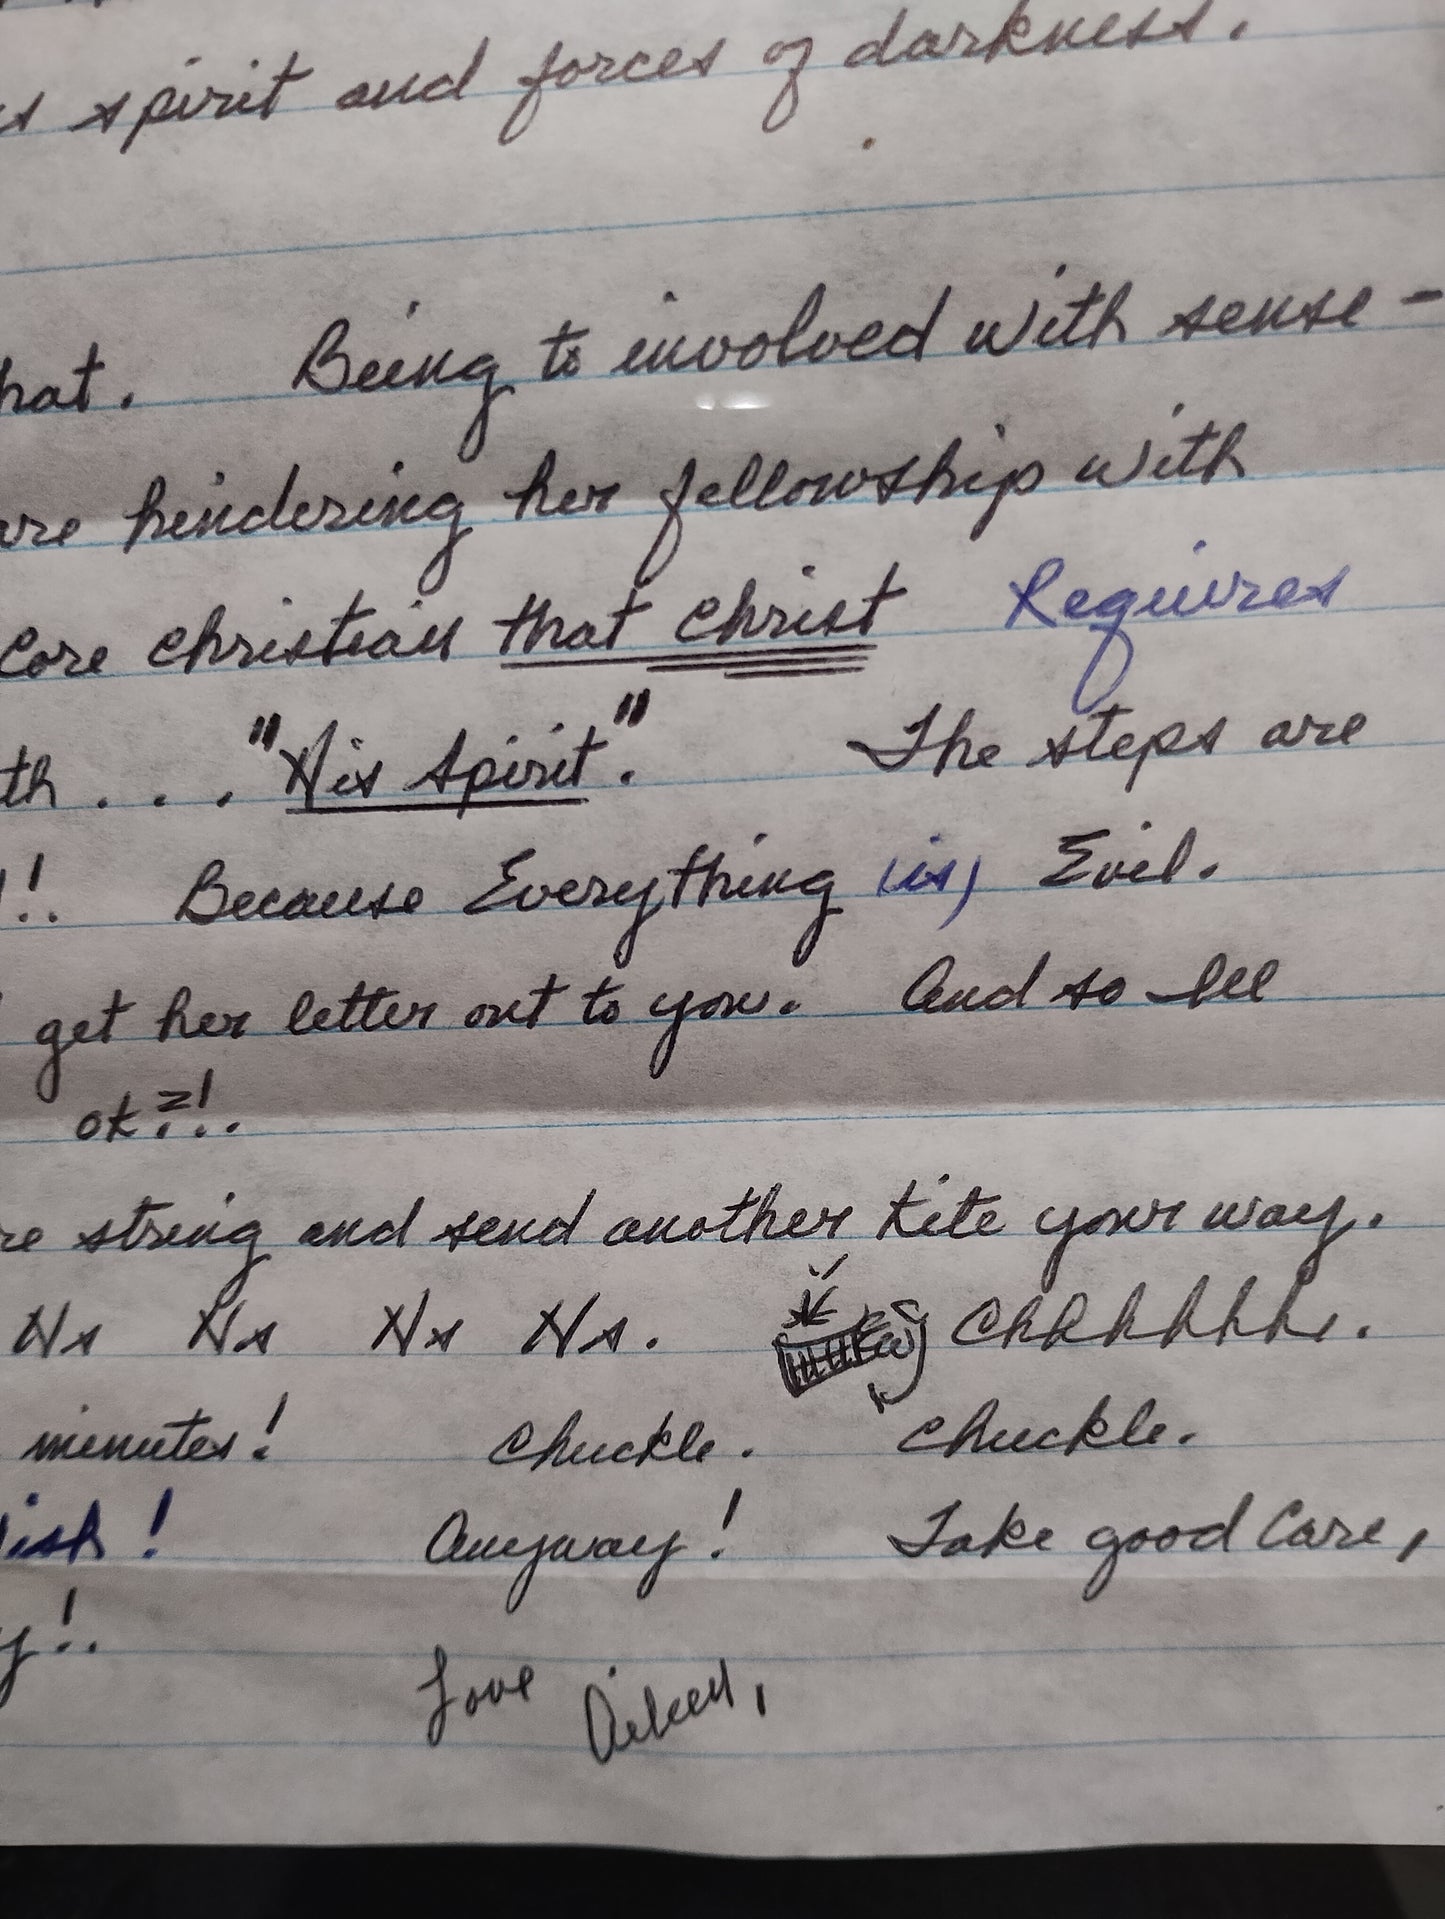 spirit and forces of darkness.
hat. Being to involved with sense-
are hindering her fellowship with
Core Christian that Christ Requires
th.... "His Spirit." The steps are
!. Because Everything (is) Evil.
get her letter out to you. And so
ok?!..
re string and send another kite your way.
Hs Hs Hs Hs. Chhhhhh.
minutes! Chuckle. Chuckle.
ish! Anyway! Take good Care,
y!.
Love